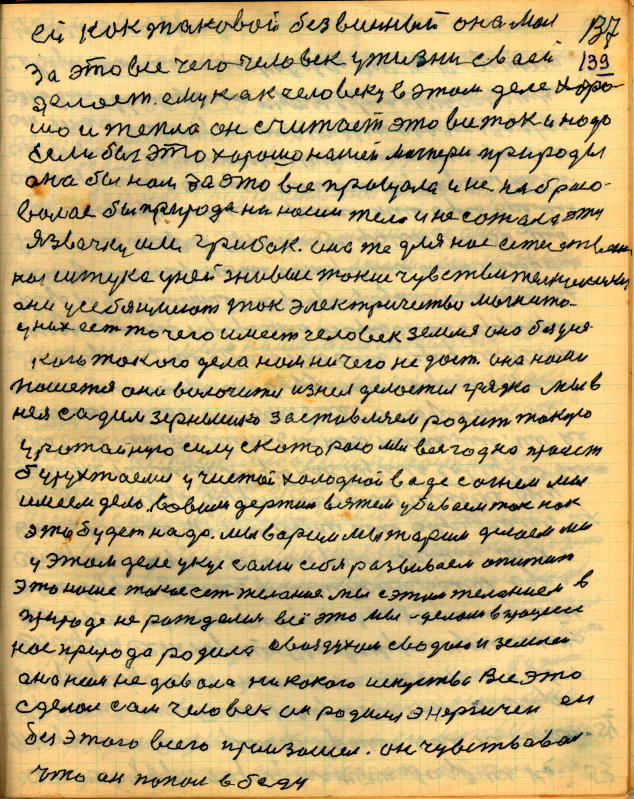 ей кок таковой безвинный она мая 137
за это все чего человек у жизни своей 139
делоет. ему как человеку в этом деле хоро-
шо и тепла он считает это ви ток и нодо
если бы это хорошо нашей матери природы
она бы нам за это все прощала и не набрасо-
волас бы природа на наши тело и не сожала эту
язвачку или грибок. она же для нас естествен
ная штука у ней живые токие чувствительные
они у себя имеют ток электричество магнито-
у них ест то чего имеет человек земля она без
кого такого дела нам ничего не даст. она нами
пошется она волочится из нея делоется грядка мы в
нея садим зернышко заставляем родит такую
урожайную силу с каторою мы всегодно
у чистой холодной ваде согнем мы
имеем дело. ловим держим вяжем убиваем ток как
это будет надо. мы варим мы жарим делаем мы
у этом деле укус сами себя развиваем апитит
это наше такое ест желание мы с этим желанием в
природе не рождался всё это мы сделали в процесси
нас природа родила с воздухом с водою и землей
она нам не довала никокого искуства Все это
сделал сам человек он родился энергичен он
без этого всего произошел. он чувствовал
что он попал в беду